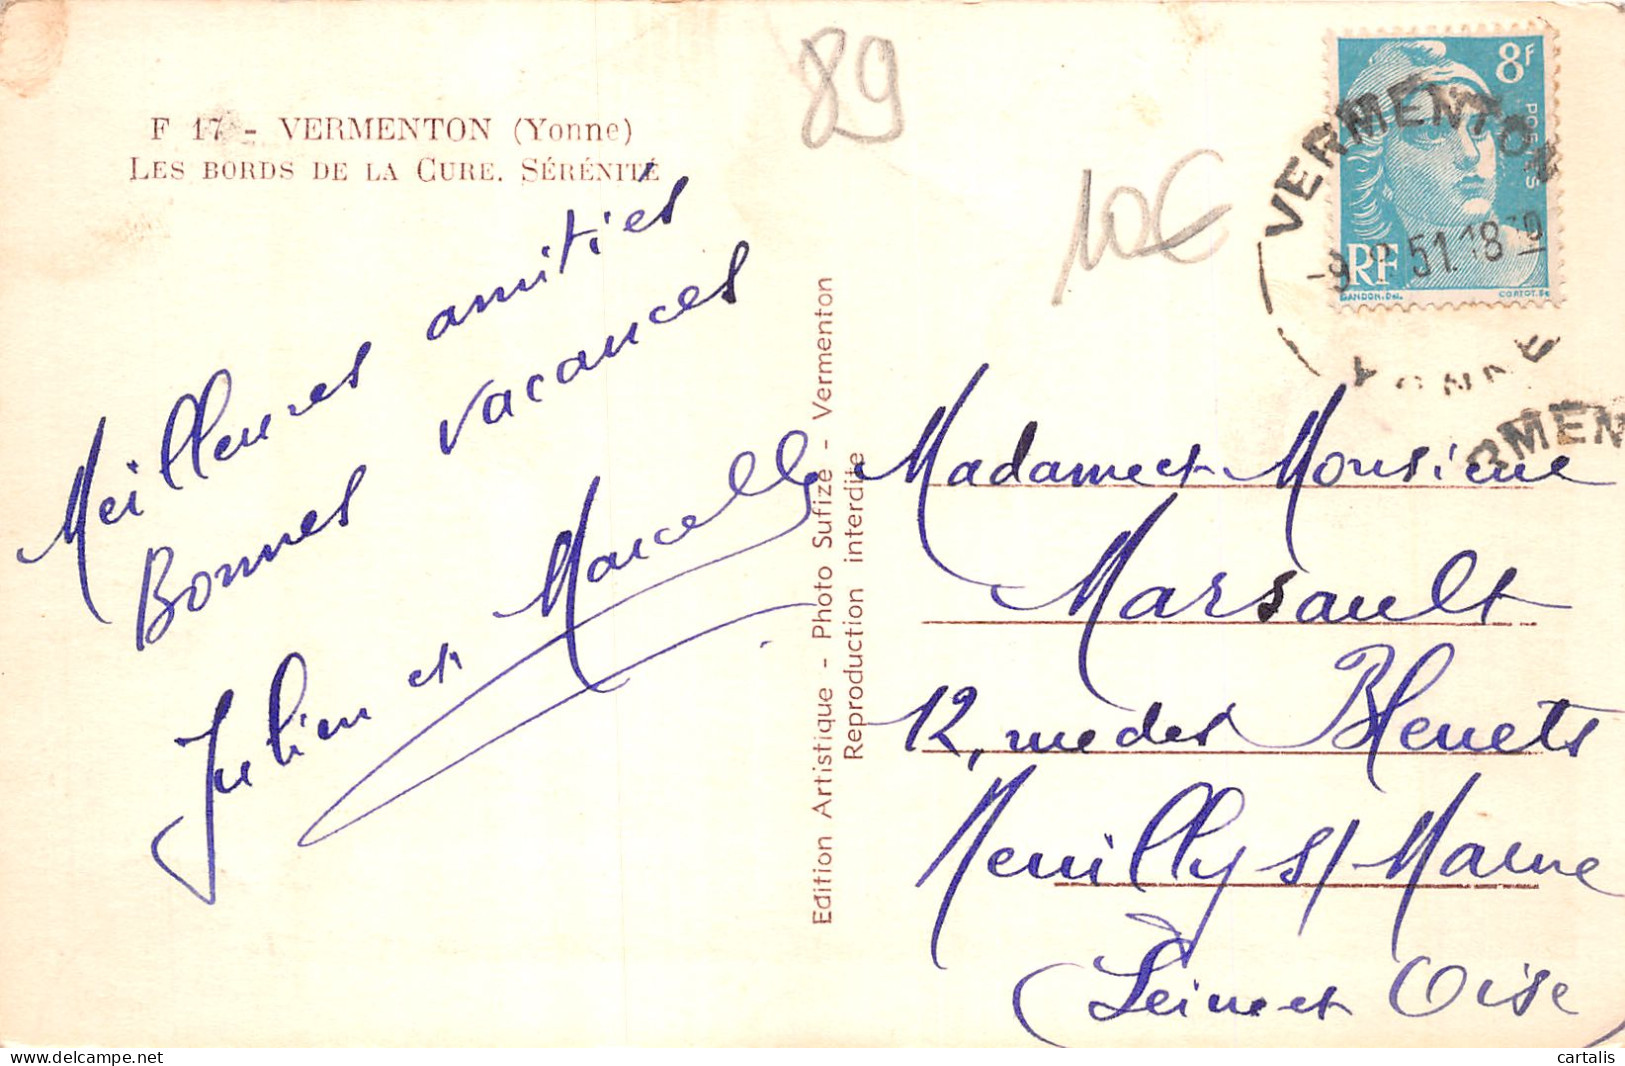 F 17 - VERMENTON (Yonne)
LES BORDS DE LA CURE. SÉRÉNITÉ
89
10€
8f
POSTES
RF
GANDON.Del.
CORTOT.Sc
VERMENTON
-9. 51. 18 30
YONNE
RMEN
Meilleures amitiés
Bonnes vacances
Julien et Marcelle
Edition Artistique - Photo Sufizé - Vermenton
Reproduction interdite
Madame et Monsieur
Marsault
12, rue des Bleuets
Neuilly s/ Marne
(Seine et Oise
cartalis
delcampe.net